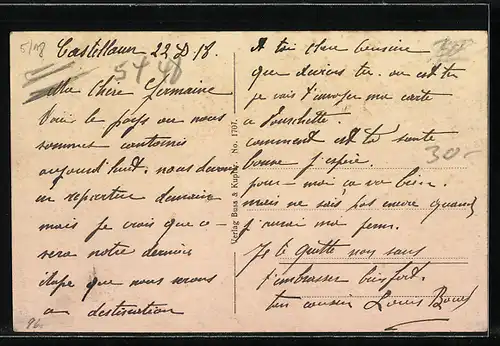 5/18
Castellaun 22 D 18.
5448
Ma chere Germaine
Voici le pays ou nous
sommes cantonnés
aujourd'huit. nous devons
en repartir demain
mais je crois que ce
sera notre dernier
étape que nous serons
a destination
96.
Verlag Buss & Kupfer, No. 1707.
A toi chere cousine
que deviens tu. ou est tu
je vais t'envoyer ma carte
a
comment est ta sante
bonne j'espère.
pour moi ca va bien.
mais ne sais pas encore quand
j'aurai ma perm.
Je te quitte non sans
t'embrasser bien fort.
ton cousin Louis
30-